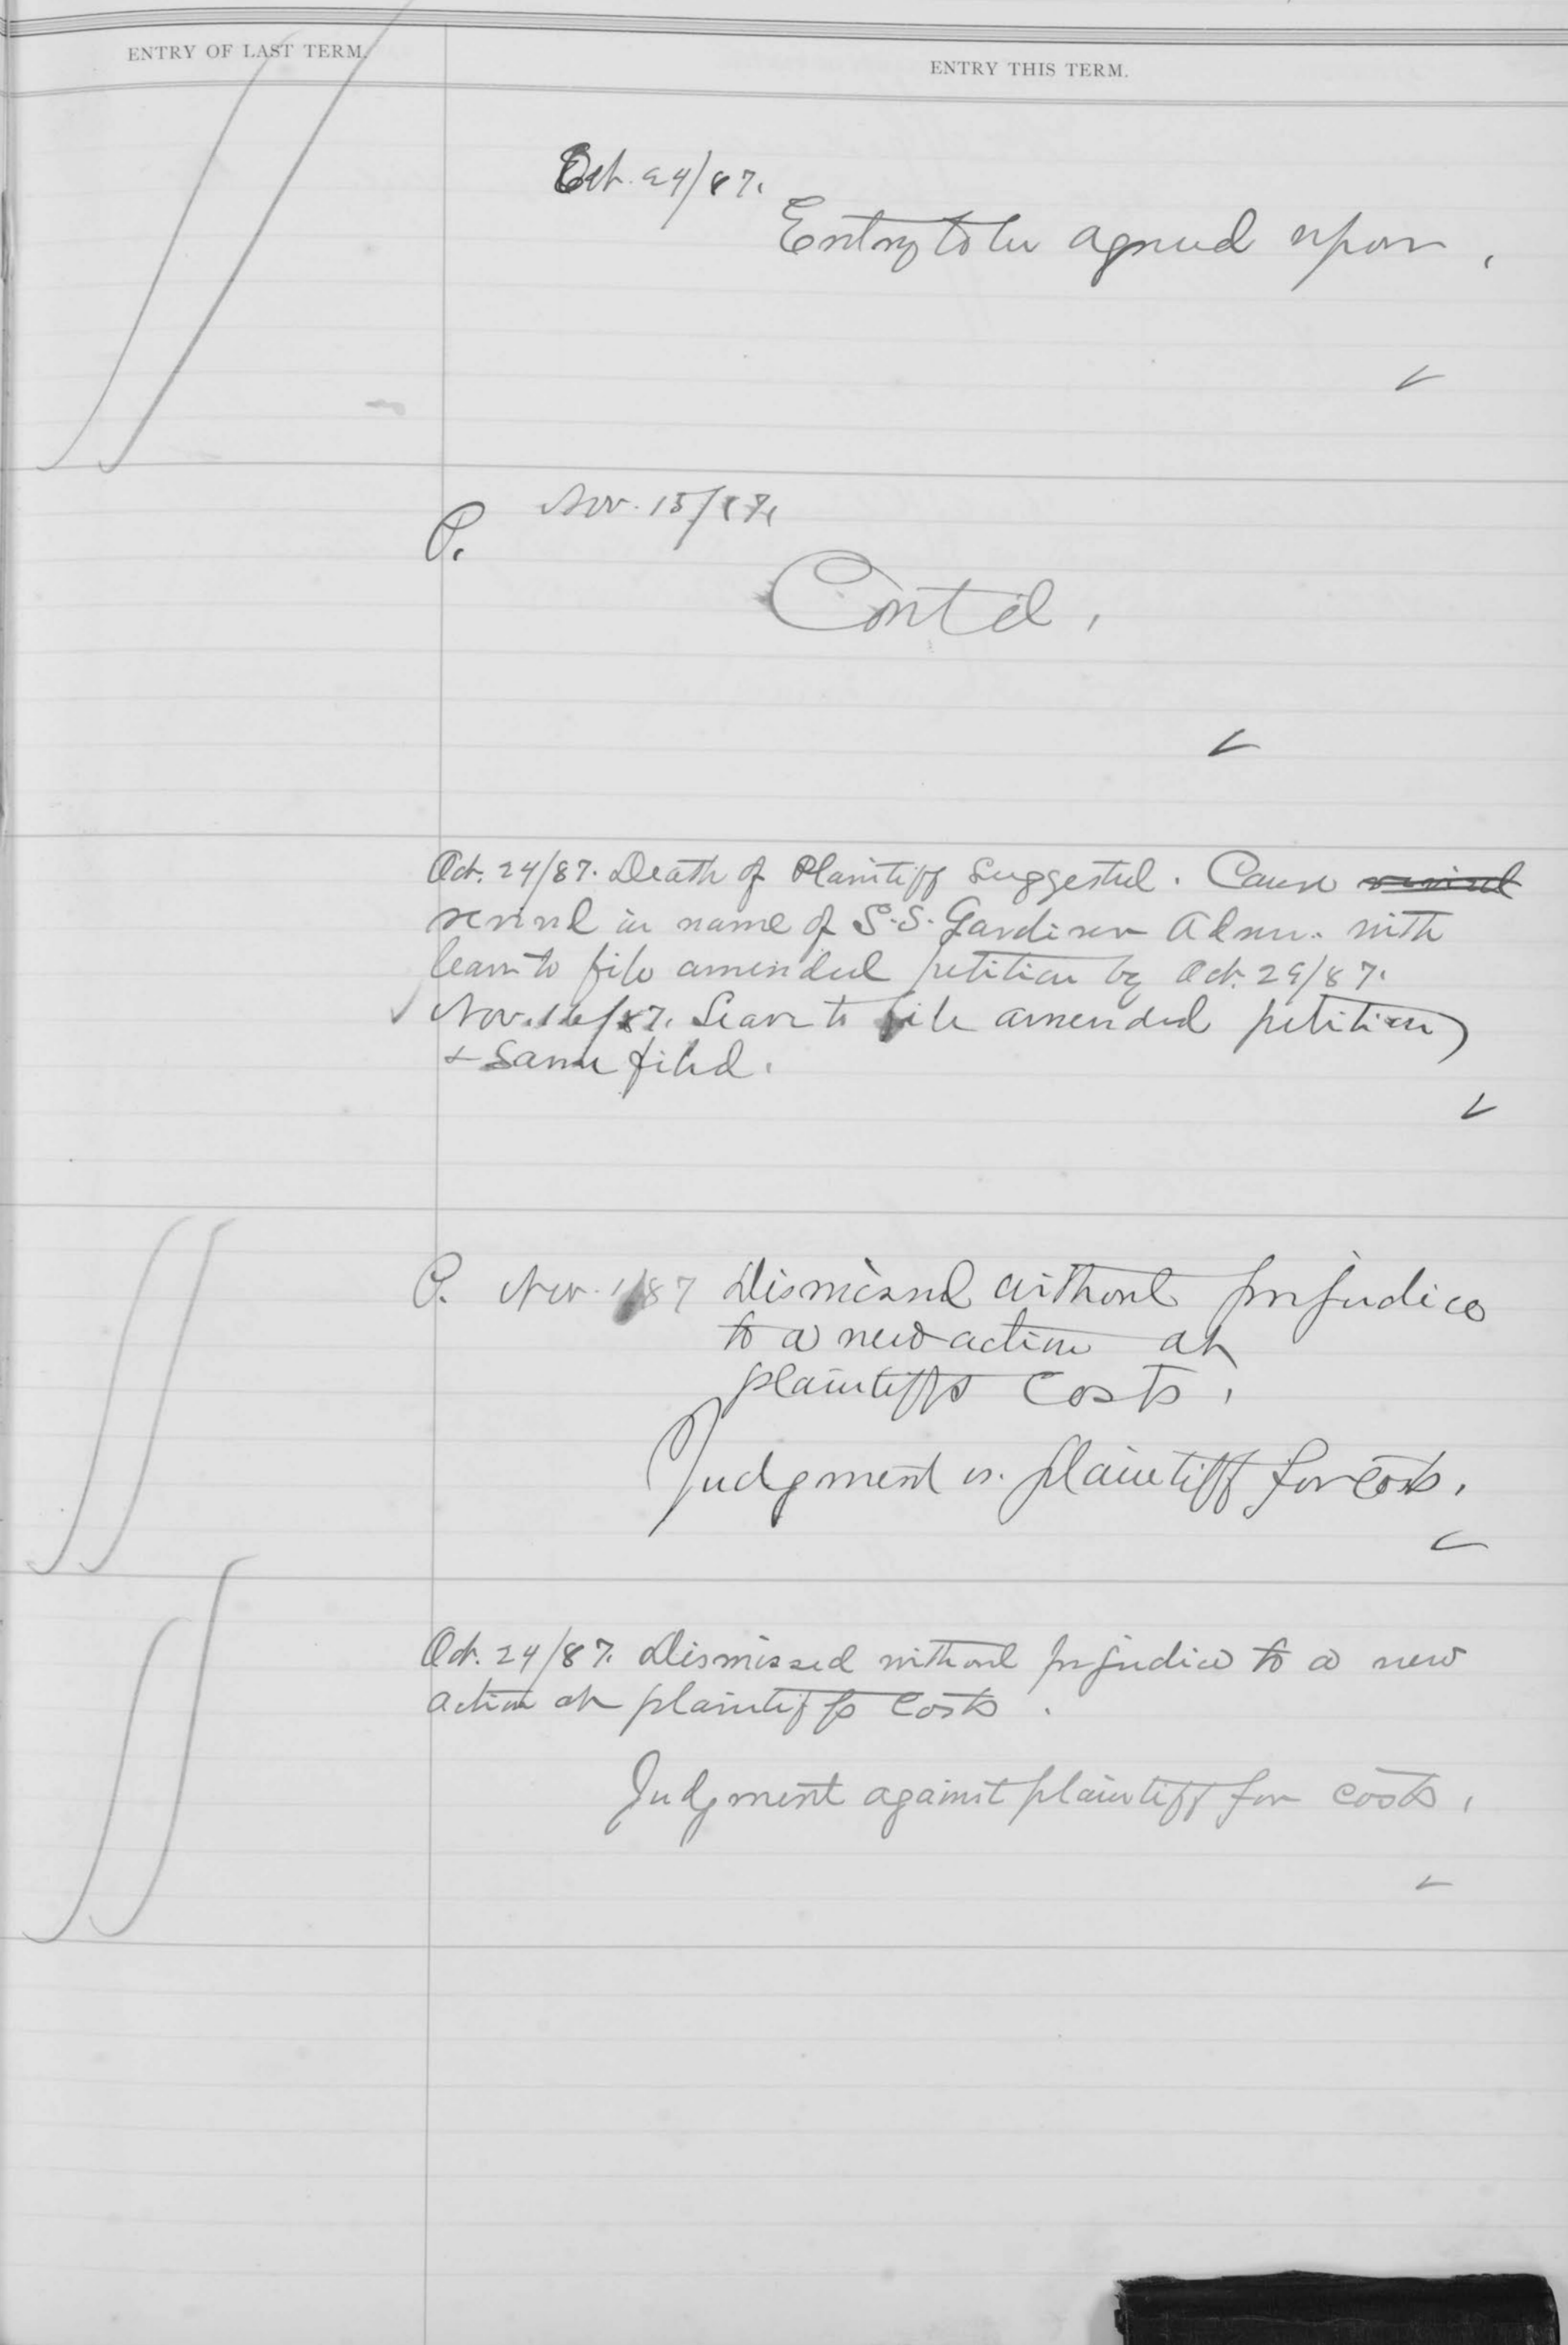 ENTRY OF LAST TERM.
ENTRY THIS TERM.
Oct. 24/87.
Entry to be agreed upon.
P. Nov. 15/87.
Cont'd.
Oct. 24/87. Death of Plaintiff Suggested. Cause revived
revived in name of S. S. Gardiner Admr. with
leave to file amended petition by Oct. 29/87.
Nov. 16/87. Leave to file amended petition
& Same filed.
P. Nov. 1/87 Dismissed without prejudice
to a new action at
plaintiffs costs.
Judgment vs. plaintiff for costs.
Oct. 24/87. Dismissed without prejudice to a new
action at plaintiffs costs.
Judgment against plaintiff for costs.